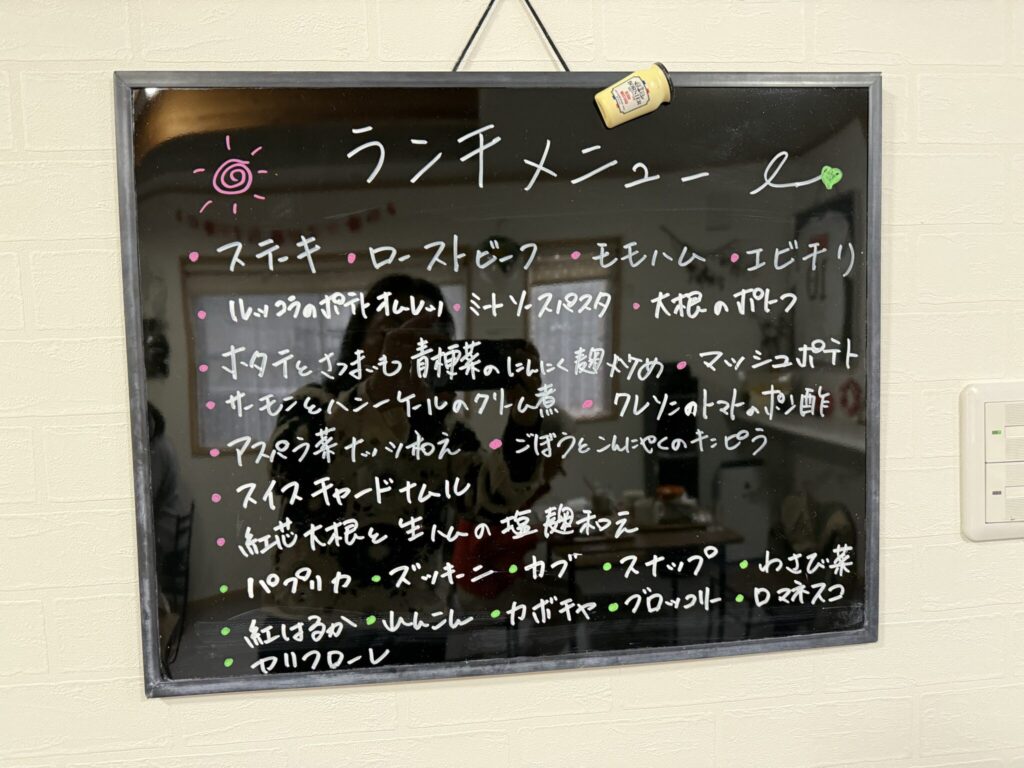 ランチメニュー
・ステーキ ・ローストビーフ ・モモハム ・エビチリ
・ルッコラのポテトオムレツ ・ミートソースパスタ ・大根のポトフ
・ホタテとさつまいも 青梗菜のにんにく麹炒め ・マッシュポテト
・サーモンとハニーケールのクリーム煮 ・クレソンのトマトのポン酢
・アスパラ菜ナッツわえ ・ごぼうとこんにゃくのキンピラ
・スイスチャードナムル
・紅芯大根と生ハムの塩麹和え
・パプリカ ・ズッキーニ ・カブ ・スナップ ・わさび菜
・紅はるか ・れんこん ・カボチャ ・ブロッコリー ・ロマネスコ
・カリフローレ